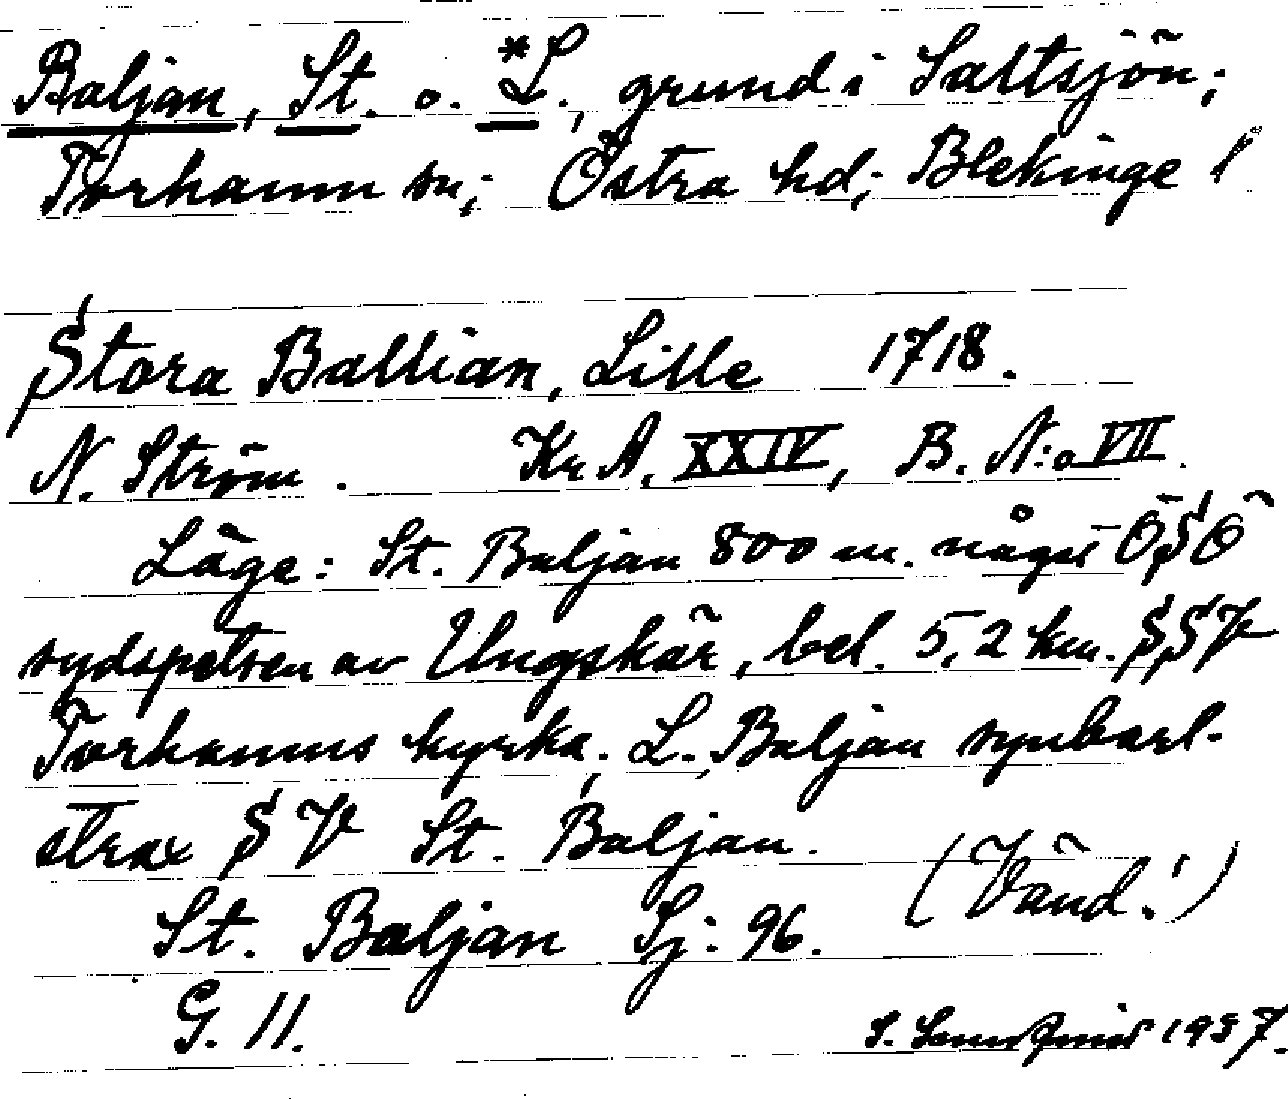 Baljan, St. o. *L., grund i Saltsjön;
Torhamn sn; Östra hd; Blekinge l
Stora Ballian, Lille 1718.
N. Ström. Kr A. XXIV, B. N:o VII.
Läge: St. Baljan 800 m. något ÖSÖ
sydspetsen av Ungskär, bel. 5,2 km. SSV
Torhamns kyrka. L. Baljan synbarl.
strax SV St. Baljan.
St. Baljan Sj: 96. (Vänd!)
G. 11.
S. 1937.